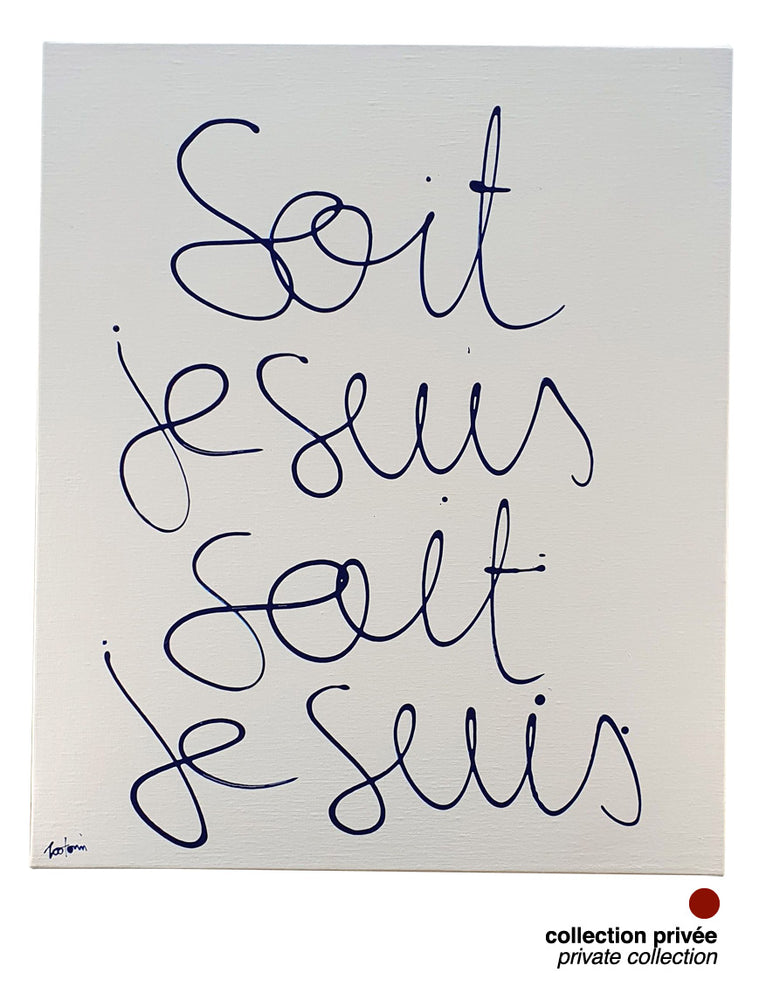 Soit
je suis
Sait
je suis
collection privée
private collection